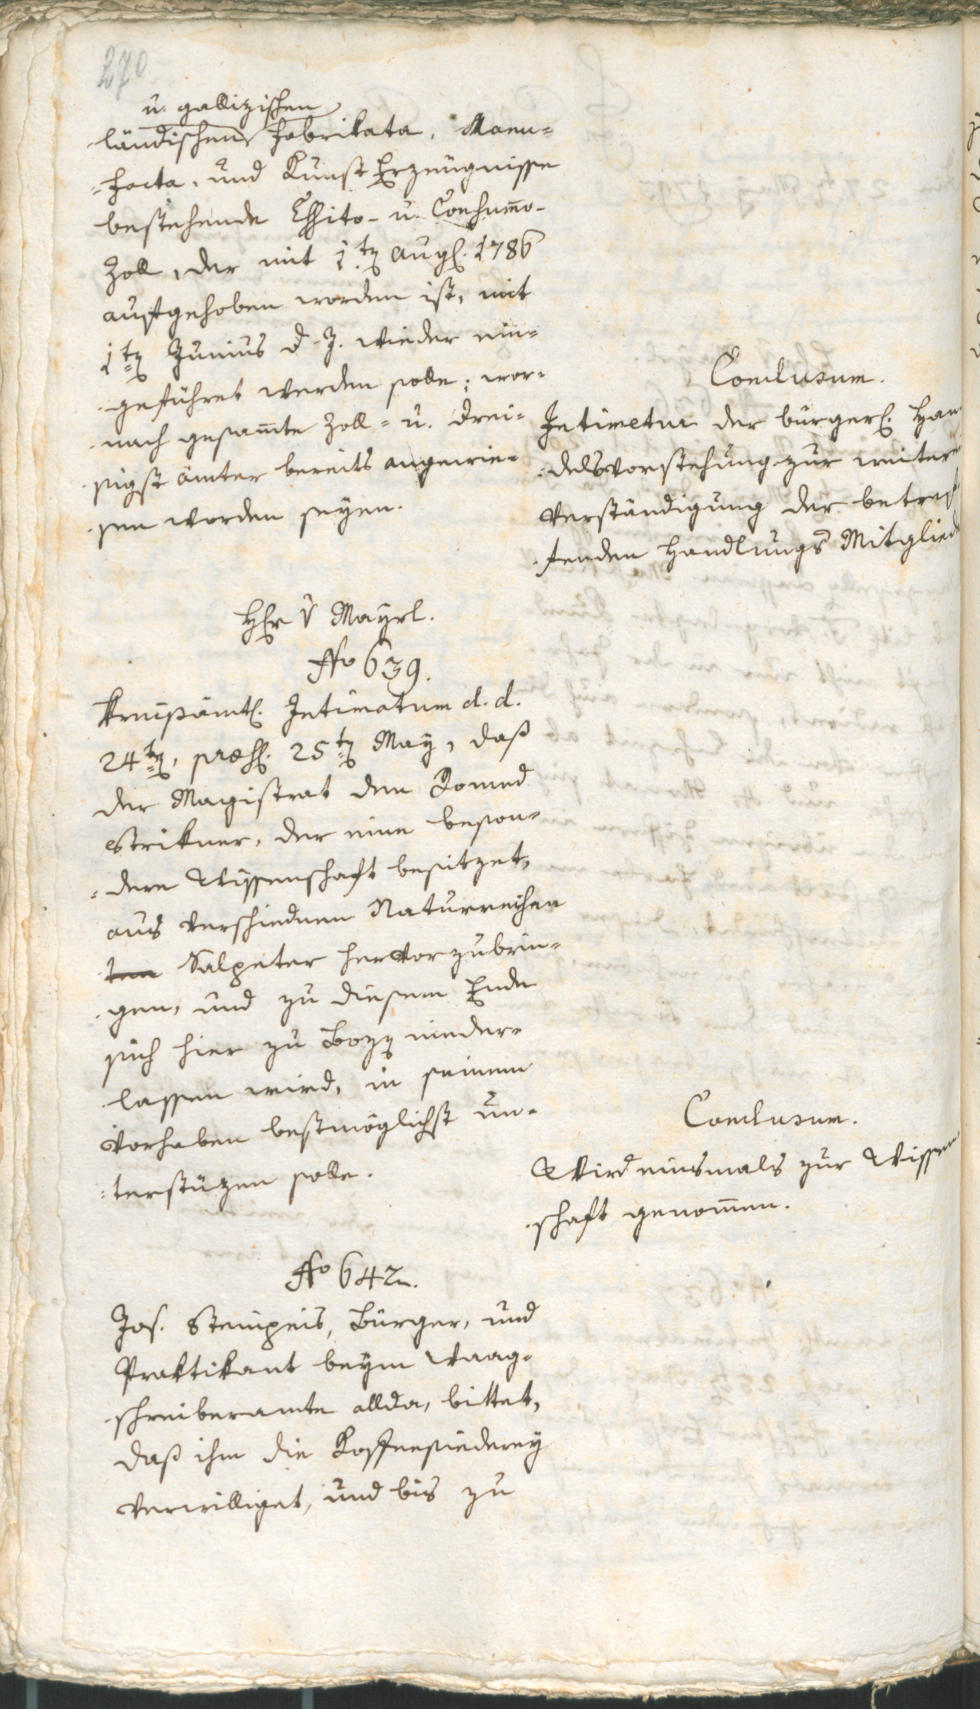 270
u. gallizischen
ländischen Fabrikata, Manu-
facta, und Kunst Erzeugnisse
bestehende Essito- u. Consumo-
Zoll, der mit 1ten Augs. 1786
aufgehoben worden ist, mit
1ten Junius d. J. wieder ein-
geführet werden solle; wor-
nach gesamte Zoll- u. Drei-
sigst ämter bereits angewie-
sen worden seyen.
Conclusum.
Intimetur der bürgerl. Han
delsvorstehung zur weitere
Verständigung der betref
fenden Handlungs Mitglied
Hr v Mayrl.
No 639.
Kreisämtl. Intimatum d. d.
24ten, præs. 25ten May, daß
der Magistrat dem Romed
Strikner, der eine beson-
dere Wissenschaft besitzet,
aus verschiednen Naturreichen
Salpeter hervorzubrin-
gen, und zu diesem Ende
sich hier zu Bozen nieder-
lassen wird, in seinem
Vorhaben bestmöglichst un-
terstüzen solle.
Conclusum.
Wird einsmals zur Wissen
schaft genommen.
No 642.
Jos. Steinpeis, Bürger, und
Praktikant beym Waag-
schreiberamte allda, bittet,
daß ihm die Koffeesiederey
verwilliget, und bis zu